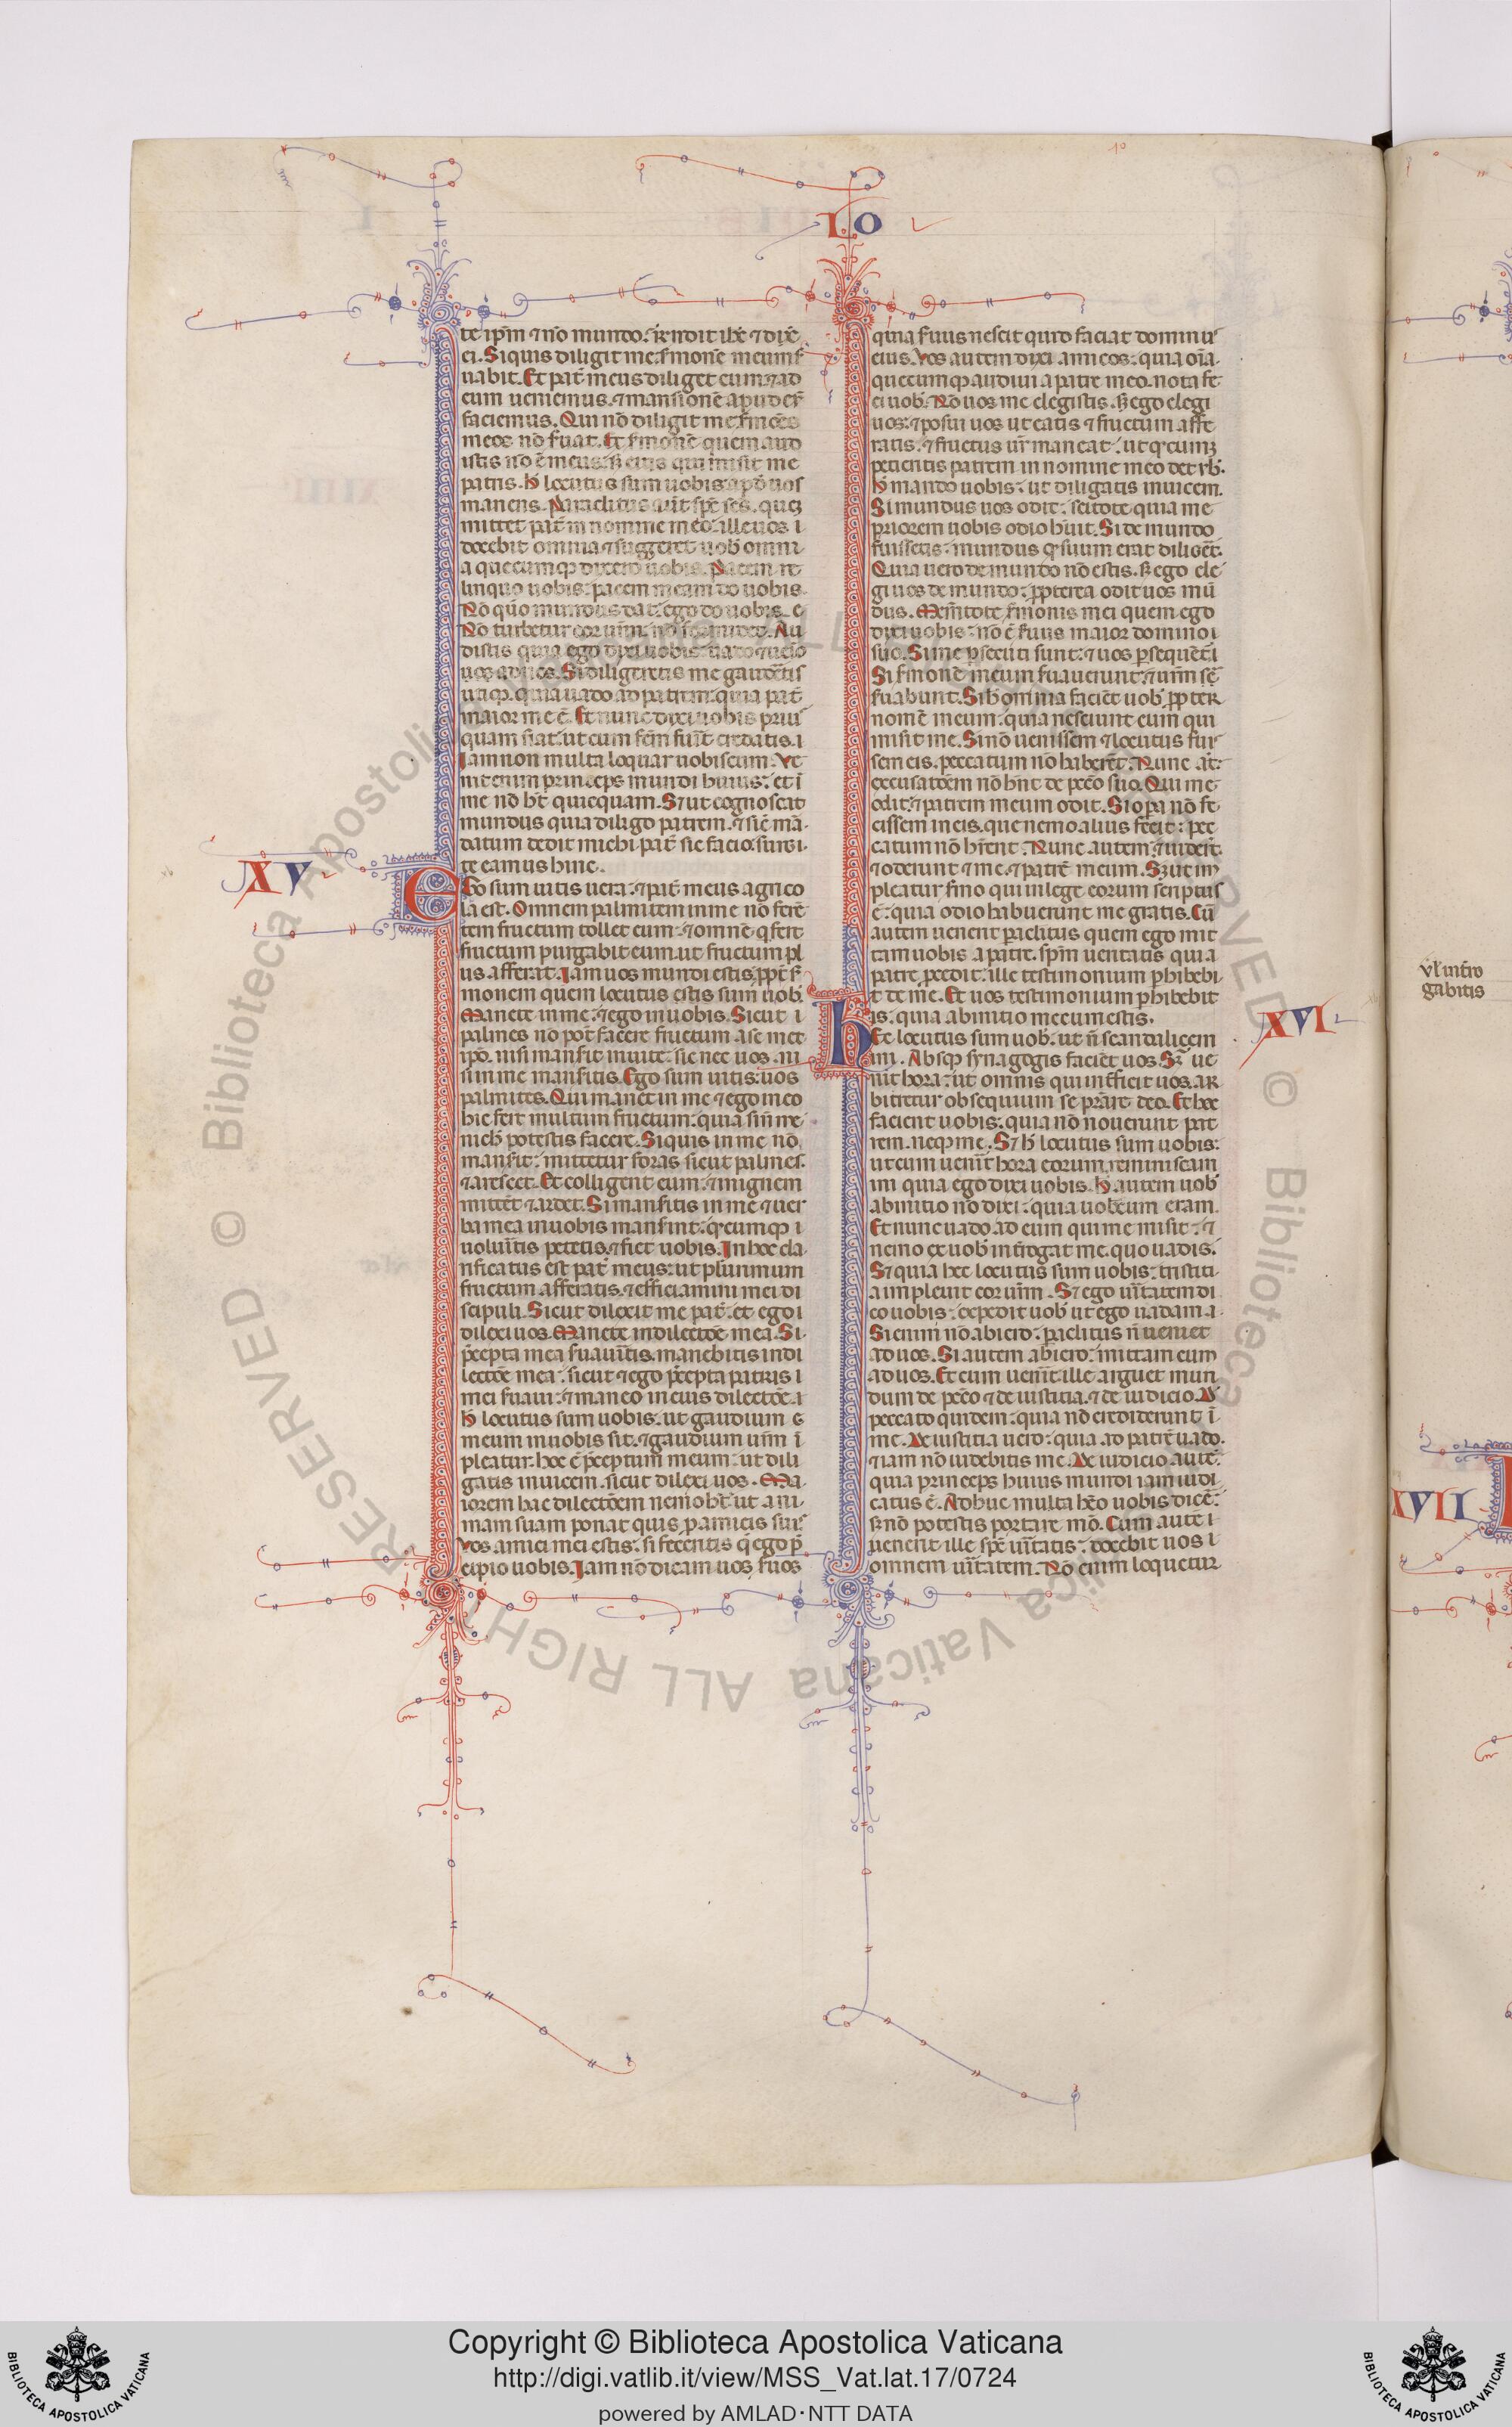 IO
te ip̄m ⁊ nō mundo. R̄ndit ih̄c ⁊ dix̄
ei. Siquis diligit me s̄monē meum s̄
uabit. Et pat̄ meus diliget eum. ⁊ ad
eum ueniemus. ⁊ mansionē apud eū
faciemus. Qui nō diligit me s̄mōes
meos nō s̄uat. Et s̄monē quem aud
istis nō ē meus: s̄ eius qui misit me
patris. H̄ locutus sum uobis apd̄ uos
manens. Paraclitus aūt sp̄c sc̄s. quē
mittet pat̄ in nomine meo: ille uos i
docebit omnia ⁊ suggeret uob̄ omni
a quecumqꝫ dixero uobis. Pacem re
linquo uobis: pacem meam do uobis.
Nō quō mundus dat ego do uobis. e
Nō turbetur cor ur̄m: nō formidet. Au
distis quia ego dixi uobis: uado ⁊ uenio
uos ad uos. Si diligeretis me gauderetis
utiqꝫ. quia uado ad patrem: quia pat̄
maior me ē. Et nunc dixi uobis prius
quam fiat: ut cum fc̄m fūit credatis. i
Iam non multa loquar uobiscum. Ve
nit enim princeps mundi huius: et i
me nō h̄t quicquam. S⁊ ut cognoscat
mundus quia diligo patrem. ⁊ sic̄ mā
datum dedit michi pat̄ sic facio. surgi
te eamus hinc.
XV
Ego sum uitis uera: ⁊ pat̄ meus agrico
la est. Omnem palmitem in me nō ferē
tem fructum tollet eum: ⁊ omnē q̄ fert
fructum purgabit eum. ut fructum pl
us afferat. Iam uos mundi estis. ꝓpt̄ s̄
monem quem locutus estis sum uob̄.
Manete in me: ⁊ ego in uobis. Sicut i
palmes nō pot̄ facere fructum a se met
ip̄o. nisi manserit in uite: sic nec uos. ni
si in me manseritis. Ego sum uitis: uos
palmites. Qui manet in me ⁊ ego in eo
hic fert multum fructum: quia sin̄ me
nich̄ potestis facere. Siquis in me nō
manserit: mittetur foras sicut palmes.
⁊ arescet. Et colligent eum: ⁊ in ignem
mittēt ⁊ ardet. Si manseritis in me ⁊ uer
ba mea in uobis manserint: q̄cumqꝫ i
uolu̅itis petetis. ⁊ fiet uobis. In hoc cla
rificatus est pat̄ meus: ut plurimum
fructum afferatis. ⁊ efficiamini mei di
scipuli. Sicut dilexit me pat̄: et ego i
dilexi uos. Manete in dilectōe mea. Si
p̄cepta mea s̄uau̅itis. manebitis in di
lectōe mea: sicut ⁊ ego p̄cepta patris i
mei s̄uaui: ⁊ maneo in eius dilectōe. i
H̄ locutus sum uobis: ut gaudium e
meum in uobis sit. ⁊ gaudium ur̄m i
pleatur. hoc ē p̄ceptum meum: ut dili
gatis inuicem. sicut dilexi uos. Ma
iorem hac dilectōem nemo h̄t: ut ani
mam suam ponat quis ꝓ amicis suis
Vos amici mei estis: si feceritis q̄ ego p̄
cipio uobis. Iam nō dicam uos s̄uos
quia s̄uus nescit quid faciat dominus
eius. Vos autem dixi amicos: quia om̄a
quecumqꝫ audiui a patre meo. nota fe
ci uob̄. Nō uos me elegistis. s̄ ego elegi
uos: ⁊ posui uos ut eatis ⁊ fructum affe
ratis. ⁊ fructus ur̄ maneat: ut q̄cumqꝫ
petieritis patrem in nomine meo det uob̄.
H̄ mando uobis: ut diligatis inuicem.
Si mundus uos odit: scitote quia me
priorem uobis odio hūit. Si de mundo
fuissetis: mundus q̄ suum erat diligēt.
Quia uero de mundo nō estis. s̄ ego ele
gi uos de mundo: ꝓpterea odit uos mū
dus. Mem̄tote s̄monis mei quem ego
dixi uobis: nō ē s̄uus maior domino i
suo. Si me ꝑsecuti sunt: ⁊ uos ꝑsequēt̄ i
Si s̄monē meum s̄uauerunt: ⁊ ur̄m s̄e
s̄uabunt. S⁊ h̄ omnia faciēt uob̄ ꝓpter
nomē meum: quia nesciunt eum qui
misit me. Si nō uenissem ⁊ locutus fuis
sem eis. peccatum nō haberēt: Nunc at̄
excusatōem nō hn̄t de pccō suo. Qui me
odit: ⁊ patrem meum odit. Si oꝑa nō fe
cissem in eis. que nemo alius fecit: pec
catum nō hr̄ent. Nunc autem ⁊ uider̄t
⁊ oderunt ⁊ me. ⁊ patrē meum. Sꝫ ut im
pleatur s̄mo qui in lege eorum scriptus
ē: quia odio habuerunt me gratis. Cū
autem uenerit paraclitus quem ego mit
tam uobis a patre. sp̄m ueritatis qui a
patre ꝓcedit: ille testimonium ꝑhibebi
t de me. Et uos testimonium ꝑhibebit
is: quia ab initio mecum estis.
XVI
Hec locutus sum uob̄. ut n̄ scandalicem
ini. Absqꝫ synagogis faciēt uos. Sꝫ ue
nit hora: ut omnis qui int̄ficit uos. ar
bitretur obsequium se pr̄are deo. Et hec
facient uobis: quia nō nouerunt pat
rem. neqꝫ me. S⁊ h̄ locutus sum uobis:
ut cum uen̄it hora eorum. reminiscam
ini quia ego dixi uobis. H̄ autem uob̄
ab initio nō dixi: quia uobcum eram.
Et nunc uado ad eum qui me misit: ⁊
nemo ex uob̄ int̄rogat me. quo uadis.
S⁊ quia hec locutus sum uobis: tristiti
a impleuit cor ur̄m. S⁊ ego u̅itatem di
co uobis: expedit uob̄ ut ego uadam.
Si enim nō abiero: paraclitus n̄ ueniet
ad uos. Si autem abiero: mittam eum
ad uos. Et cum uen̄it ille arguet mun
dum de pccō ⁊ de iusticia. ⁊ de iudicio. De
peccato quidem: quia nō crediderunt i
me. De iustitia uero: quia ad patrē uado.
⁊ iam nō uidebitis me. De iudicio autē:
quia princeps huius mundi iam iudi
catus ē. Adhuc multa h̄eo uobis dicē:
s̄ nō potestis portare mō. Cum autē i
uenerit ille sp̄c u̅itatis: docebit uos i
omnem u̅itatem. Nō enim loquetur
vl̄ int̄ro
gabitis
XVII
© Biblioteca Apostolica Vaticana ALL RIGHTS RESERVED
Copyright © Biblioteca Apostolica Vaticana
http://digi.vatlib.it/view/MSS_Vat.lat.17/0724
powered by AMLAD·NTT DATA
BIBLIOTECA APOSTOLICA VATICANA
BIBLIOTECA APOSTOLICA VATICANA